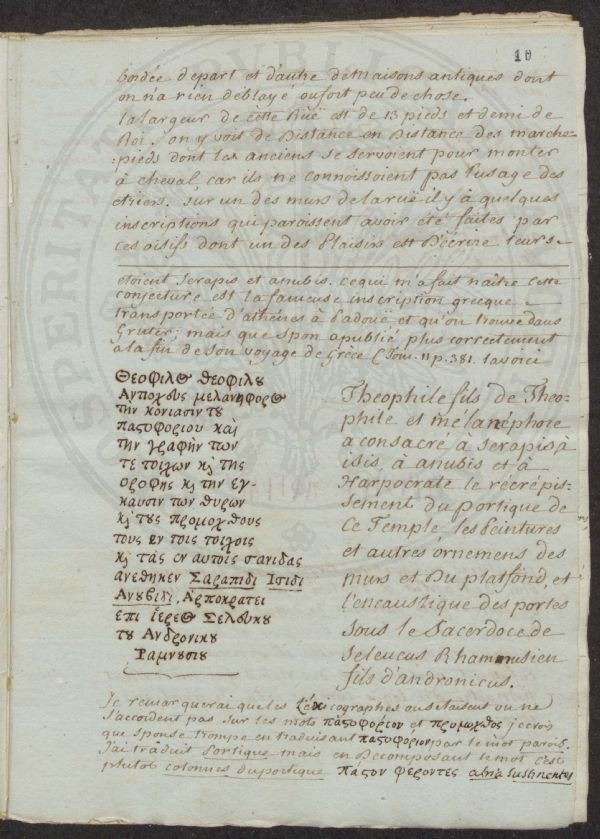 10
bordée depart et dautre demaisons antiques dont
on n'a rien deblayé oufort peu de chose.
la largeur de cette Ruë est de 13 pieds et demi de
Roi. on y voit de Distance en Distance des marche-
-pieds dont les anciens se servoient pour monter
à cheval, car ils ne connoissoient pas lusage des
etriers. sur un des murs delaruë il y à quelques
inscriptions qui paroissent avoir eté faites par
ces oisifs dont un des Plaisirs est D'écrire leurs
etoient Serapis et anubis. cequi m'afait naître cette
conjecture est la fameuse inscription grecque
transportée d'athénes à Padoüe et qu'on trouve dans
Gruter; mais que Spon apublié plus correctement
ala fin de son voyage de Grèce (Tom. 11 p. 381. lavoici
Θεοφιλ⊙ θεοφιλȣ
Αντιοχȣς μελανηφορ⊙
την κονιασιν τȣ
παςοφοριου καὶ
την γραφὴν των
τε τοιχων κ̀ της
οροφης κ̀ την εγ-
καυσιν των θυρων
κ̀ τȣς προμοχθους
τους εν τοις τοιχοις
κ̀ τὰς εν αυτοις σανιδας
ανεθηκεν Σαραπιδι Ισιδι
Ανυβιδι, Αρποκρατει
επι ἱερε⊙ Σελευκυ
τȣ Ανδρονικȣ
Ραμνυσιȣ
Theophile fils de Theo-
phile et mélanéphore
a consacré à serapis à
isis, à anubis et à
Harpocrate le récrépis-
sement du portique de
ce Temple les Peintures
et autres ornemens des
murs et du platfond, et
l'encaustique des portes
sous le Sacerdoce de
Seleucus Rhamnusien
fils d'andronicus.
Je remarquerai que les Léxicographes ouse taisent ou ne
s'accordent pas sur les mots παςοφοριον et προμοχθος jecrois
que Sponse trompe en traduisant παςοφοριον par le mot parois.
J'ai traduit Portique mais en Décomposant le mot c'est
plutot colonnes duportique παςον φεροντες atria sustinentes